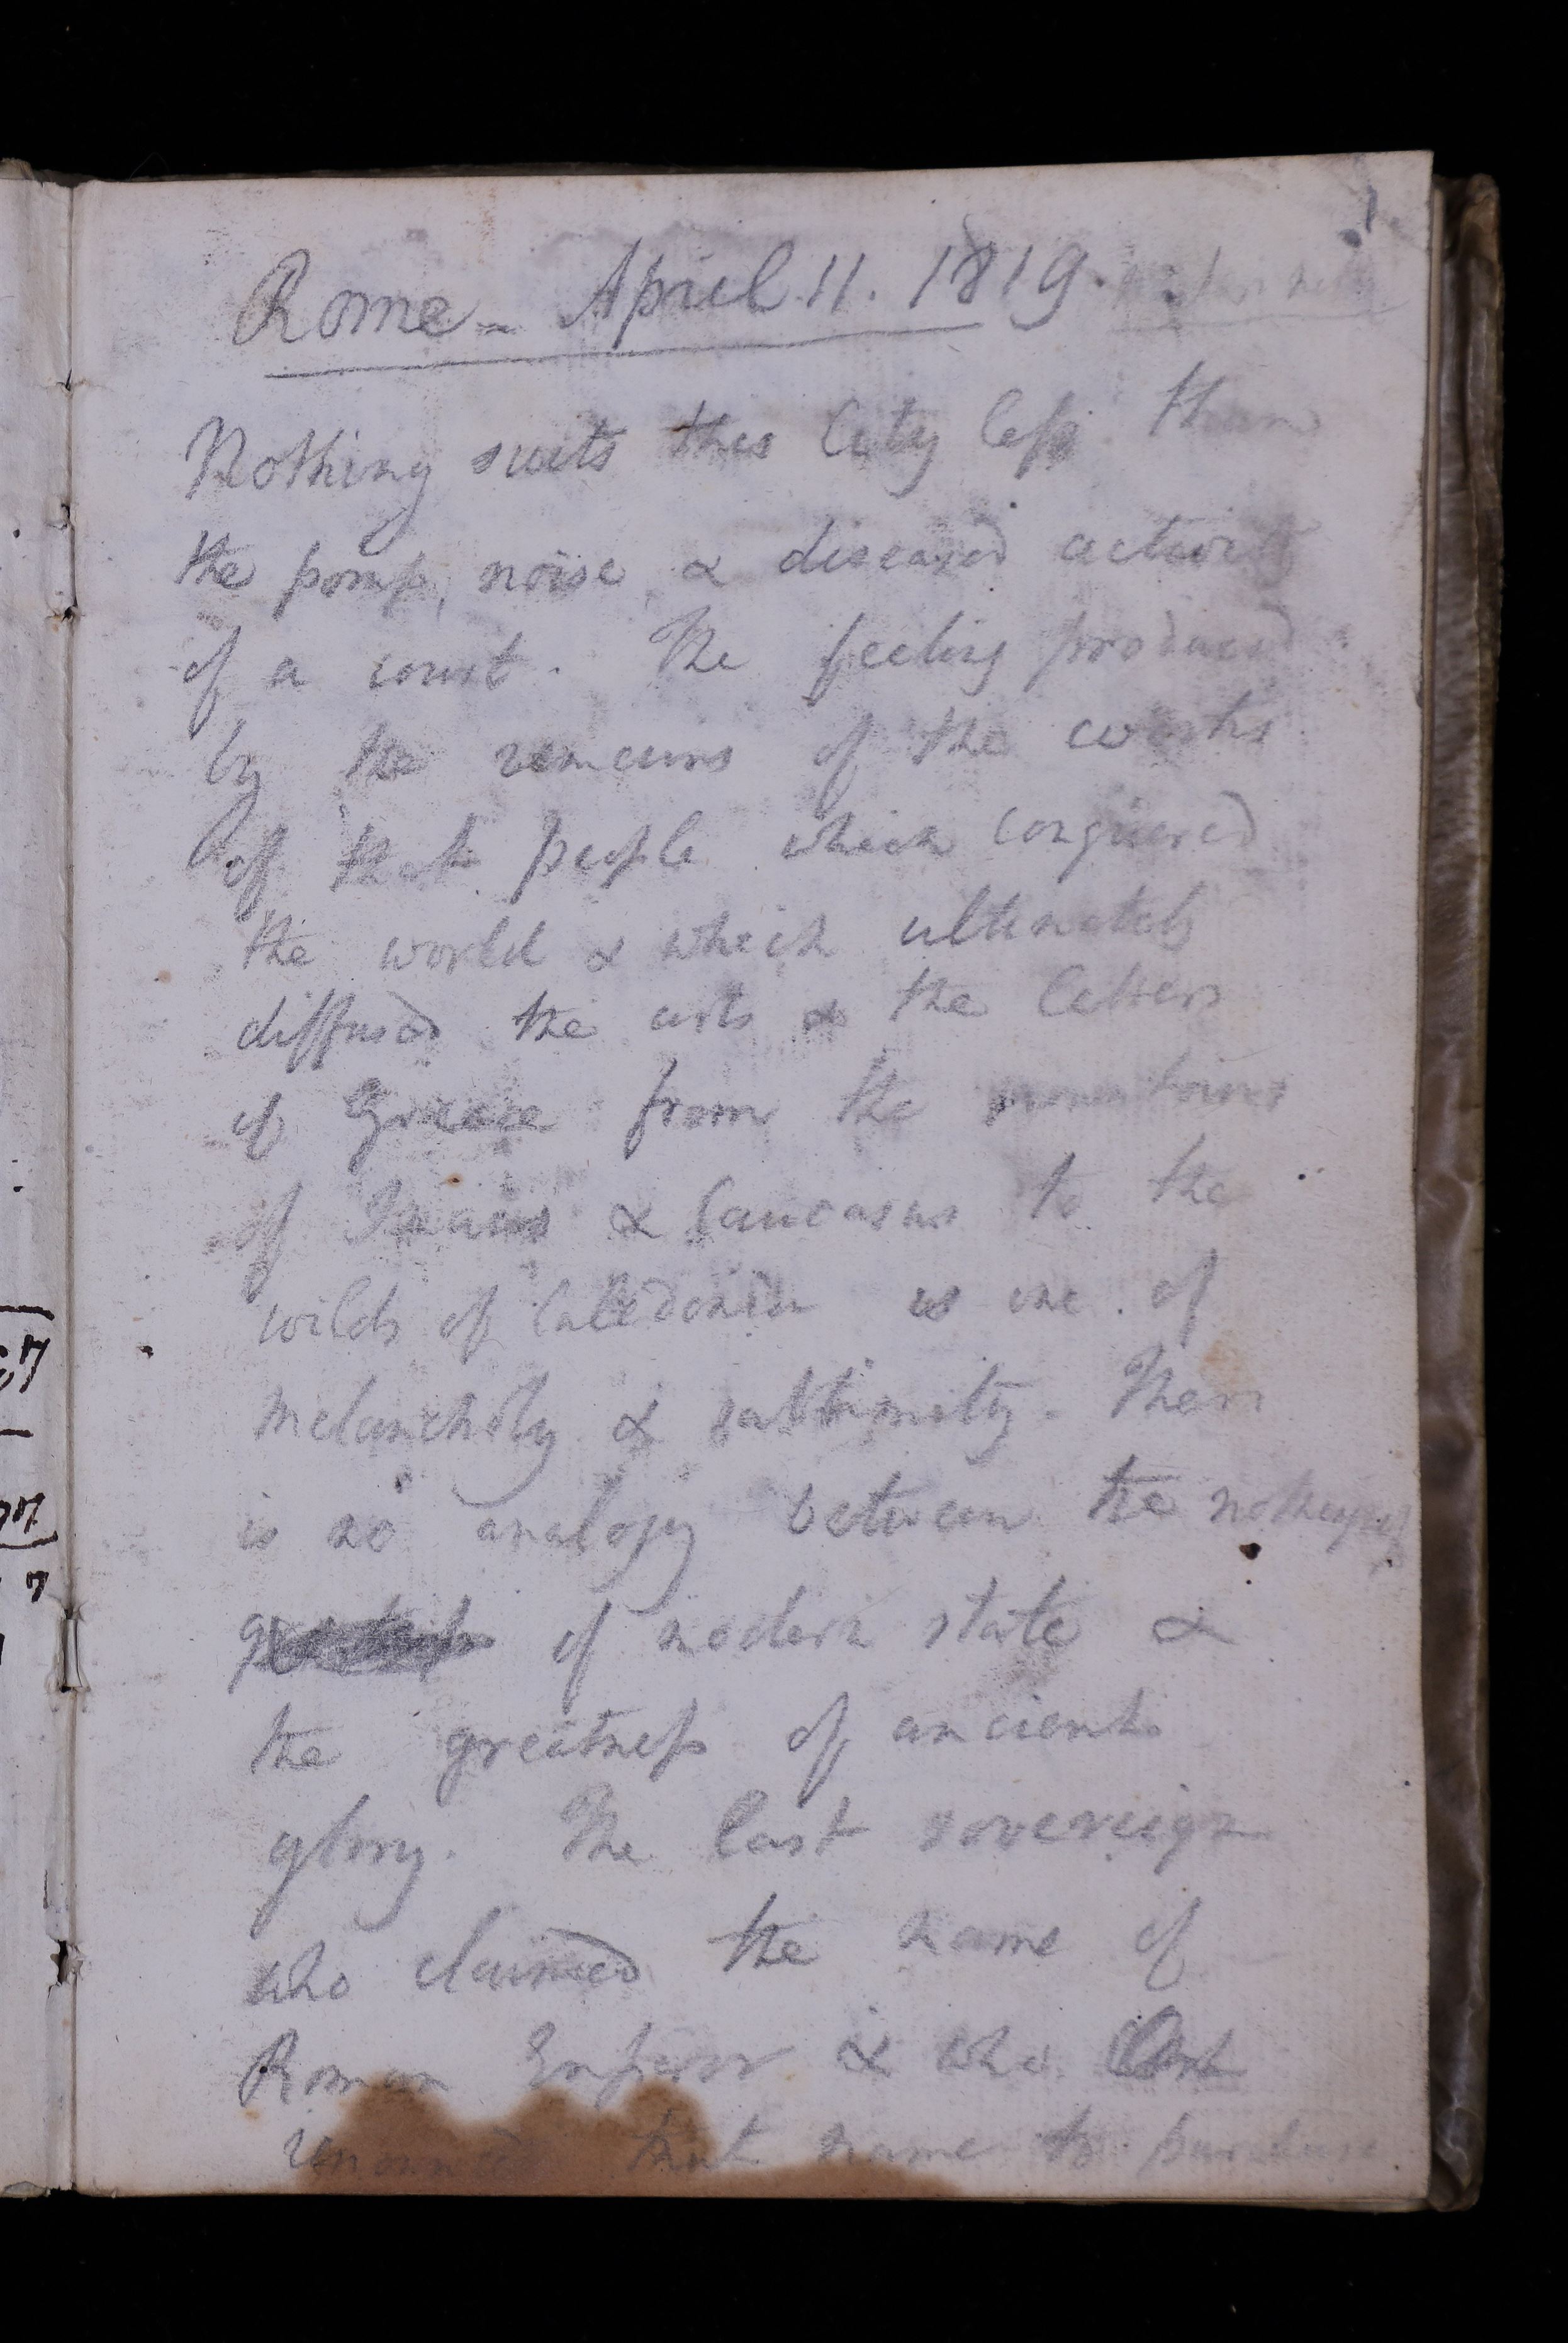 1
Rome - April 11. 1819.
Nothing suits this City less than
the pomp, noise & diseased activity
of a court. The feeling produced
by the remains of the works
of that people which conquered
the world & which ultimately
diffused the arts & the letters
of Greece from the mountains
of Imaus & Caucasus to the
wilds of Caledonia is one of
melancholy & sublimity. There
is no analogy between the
of modern state &
the greatness of ancient
glory. The last sovereign
who claimed the name of
Roman Emperor & who
renounced that name to purchase